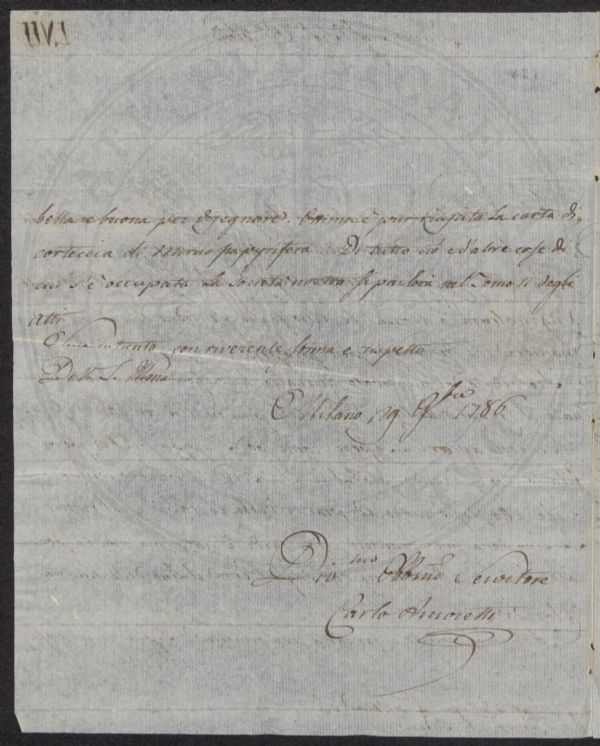 LVII
bella e buona per disegnare. Ottima è pur riuscita la carta di
corteccia di morus papyrifera. Di tutto ciò e d'altre cose di
cui s'è occupata la Società nostra si parlerà nel Tomo II degli
Atti.
intanto con riverente stima e rispetto
Della S. V. Illma
Milano 19 1786
Obbmo Servitore
Carlo Amoretti